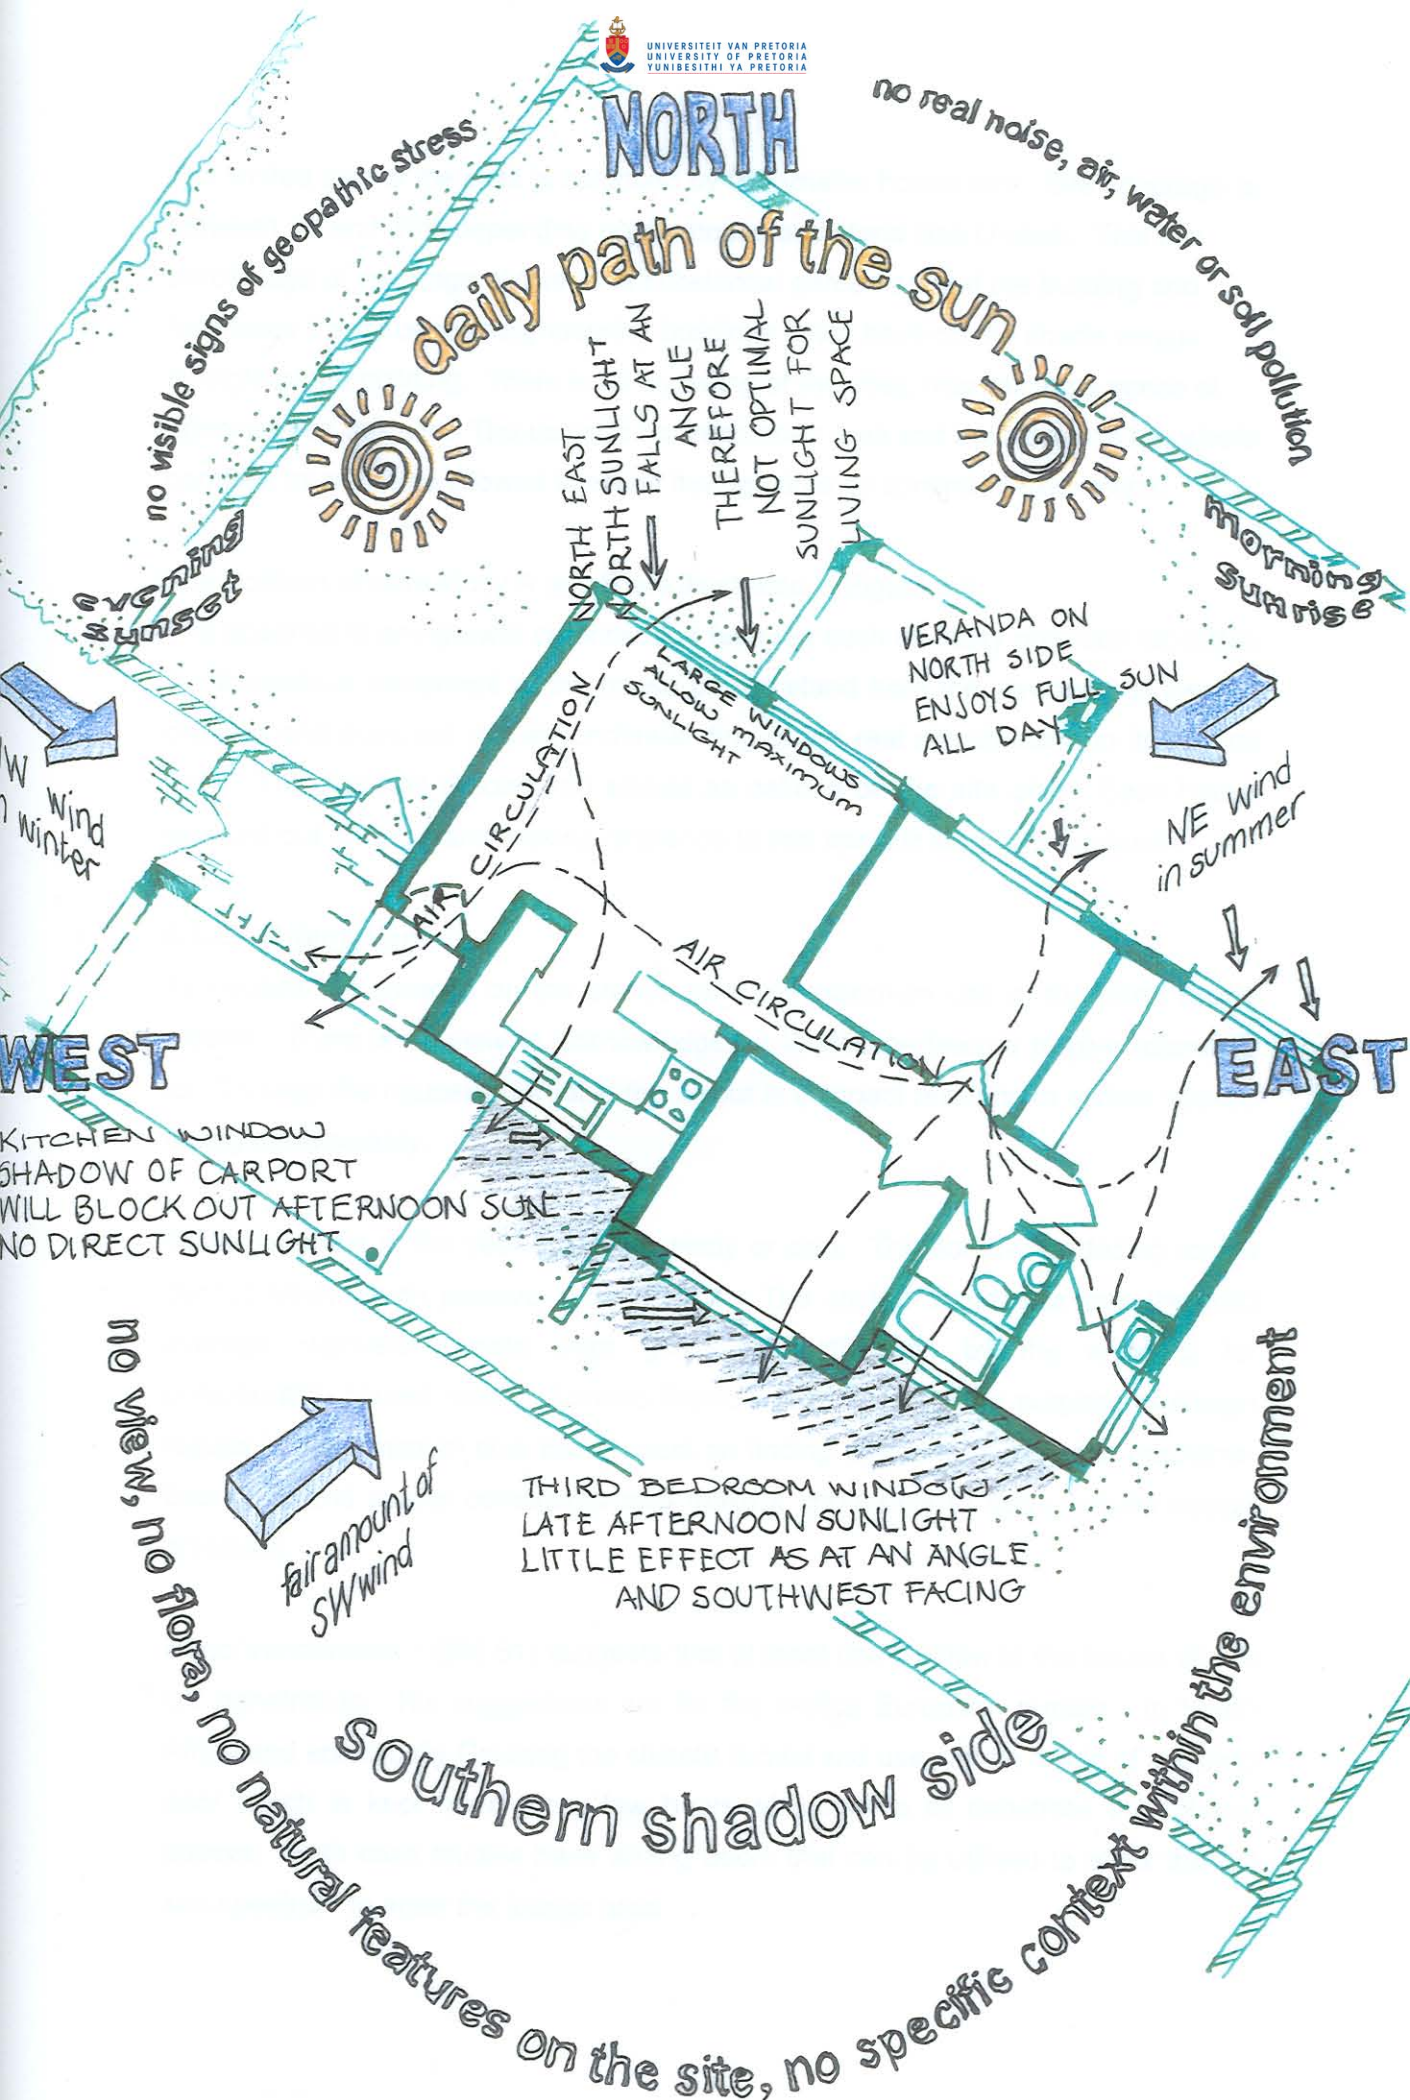 UNIVERSITEIT VAN PRETORIA
UNIVERSITY OF PRETORIA
YUNIBESITHI YA PRETORIA
NORTH
no visible signs of geopathic stress
no real noise, air, water or soil pollution
daily path of the sun
NORTH EAST
NORTH SUNLIGHT
FALLS AT AN
ANGLE
THEREFORE
NOT OPTIMAL
SUNLIGHT FOR
LIVING SPACE
evening
sunset
morning
sunrise
VERANDA ON
NORTH SIDE
ENJOYS FULL SUN
ALL DAY
LARGE WINDOWS
ALLOW MAXIMUM
SUNLIGHT
AIR CIRCULATION
W wind
winter
NE wind
in summer
AIR CIRCULATION
WEST
EAST
KITCHEN WINDOW
SHADOW OF CARPORT
WILL BLOCK OUT AFTERNOON SUN
NO DIRECT SUNLIGHT
fair amount of
SW wind
THIRD BEDROOM WINDOW
LATE AFTERNOON SUNLIGHT
LITTLE EFFECT AS AT AN ANGLE
AND SOUTHWEST FACING
southern shadow side
no view, no flora, no natural features on the site, no specific context within the environment